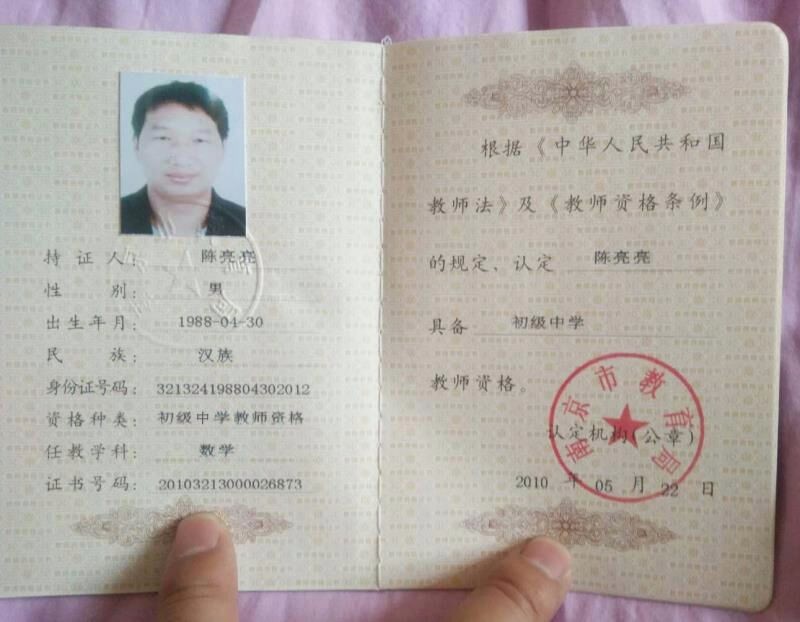 持证人： 陈亮亮
性别： 男
出生年月： 1988-04-30
民族： 汉族
身份证号码： 321324198804302012
资格种类： 初级中学教师资格
任教学科： 数学
证书号码： 20103213000026873
根据《中华人民共和国
教师法》及《教师资格条例》
的规定，认定 陈亮亮
具备 初级中学
教师资格。
南京市教育局
认定机构(公章)
2010 年 05 月 22 日